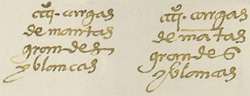 cargas
de mantas
grandes
y blancas
cargas
de mãtas
grandes
y blancas